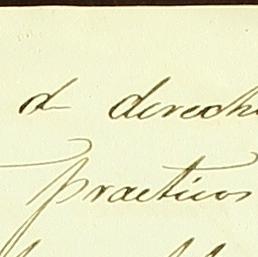 d derech
practicos